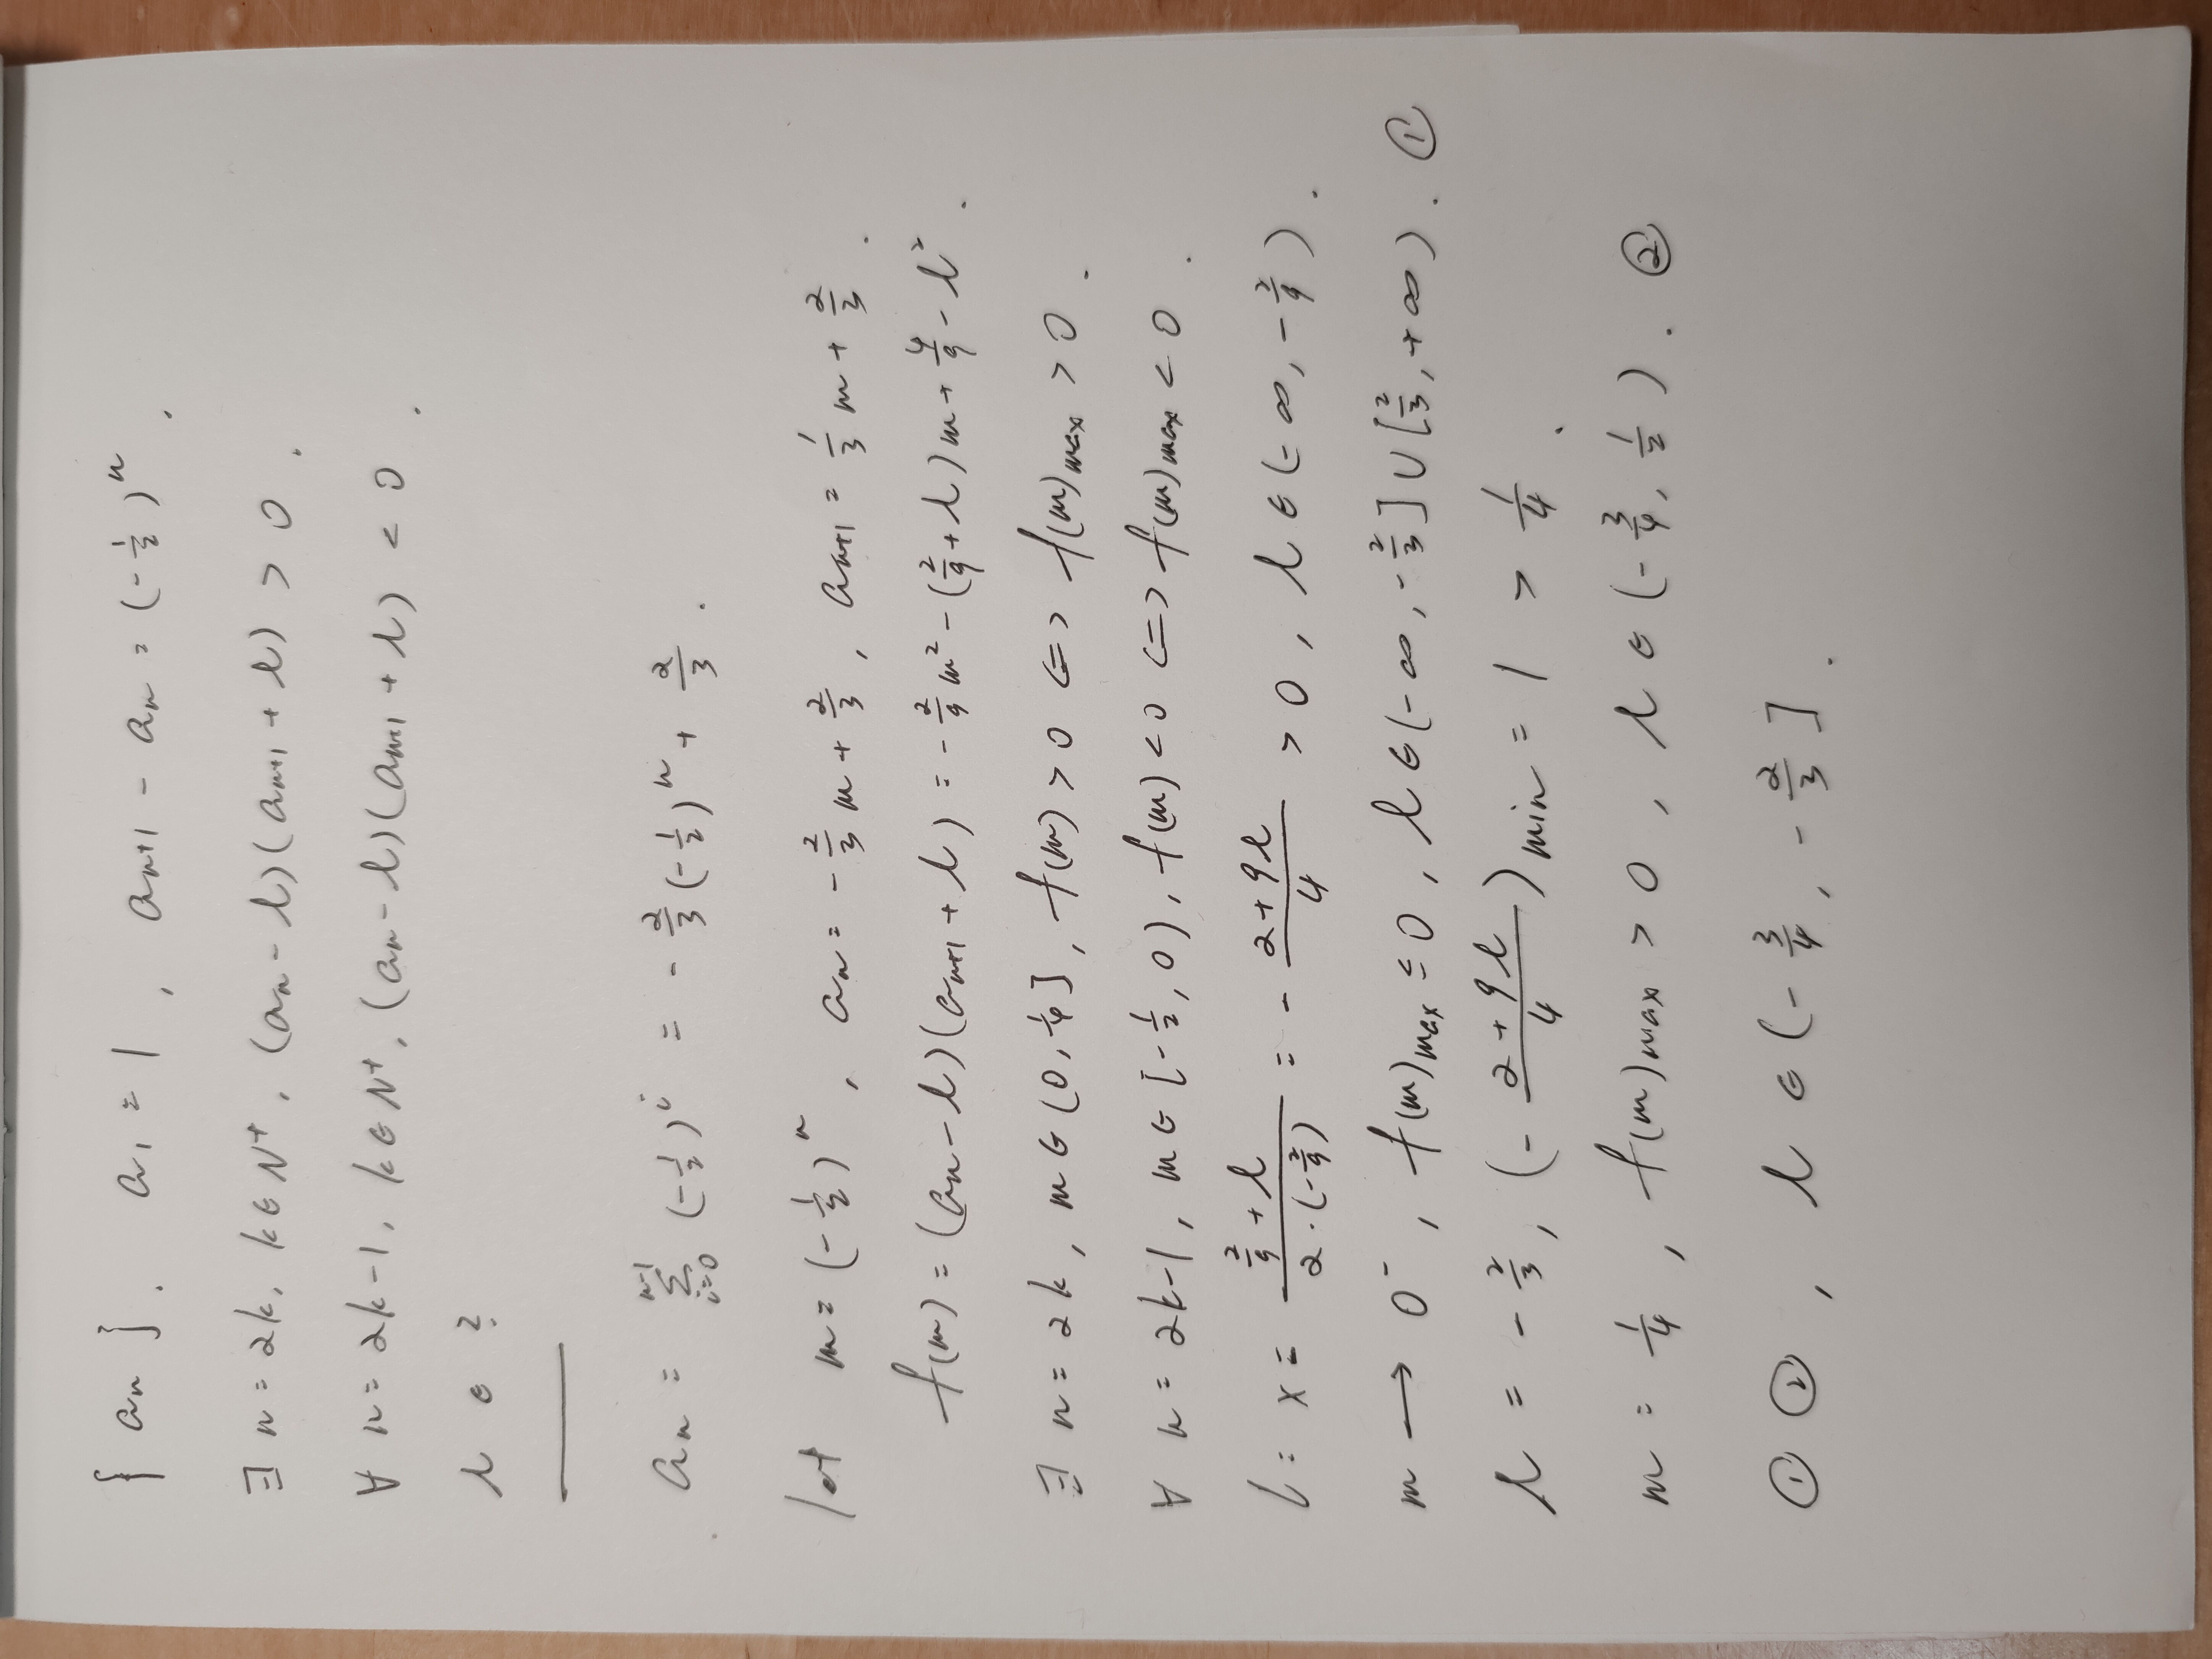 { aₙ }. a₁ = 1, aₙ₊₁ - aₙ = (-1/2)ⁿ.
∃ n = 2k, k ∈ N⁺, (aₙ - l)(aₙ₊₁ + l) > 0.
∀ n = 2k-1, k ∈ N⁺, (aₙ - l)(aₙ₊₁ + l) < 0.
l ∈ ?
aₙ = Σ_{i=0}^{n-1} (-1/2)ⁱ = -2/3(-1/2)ⁿ + 2/3.
let m = (-1/2)ⁿ, aₙ = -2/3 m + 2/3, aₙ₊₁ = 1/3 m + 2/3.
f(m) = (aₙ - l)(aₙ₊₁ + l) = -2/9 m² - (2/9 + l)m + 4/9 - l².
∃ n = 2k, m ∈ (0, 1/4], f(m) > 0 <=> f(m)max > 0.
∀ n = 2k-1, m ∈ [-1/2, 0), f(m) < 0 <=> f(m)max < 0.
l: x = (2/9 + l)/(2·(-2/9)) = -(2+9l)/4 > 0, l ∈ (-∞, -2/9).
m → 0⁻, f(m)max ≤ 0, l ∈ (-∞, -2/3] ∪ [2/3, +∞). ①
l = -2/3, (-(2+9l)/4)min = 1 > 1/4.
m = 1/4, f(m)max > 0, l ∈ (-3/4, 1/2). ②
① ②, l ∈ (-3/4, -2/3].